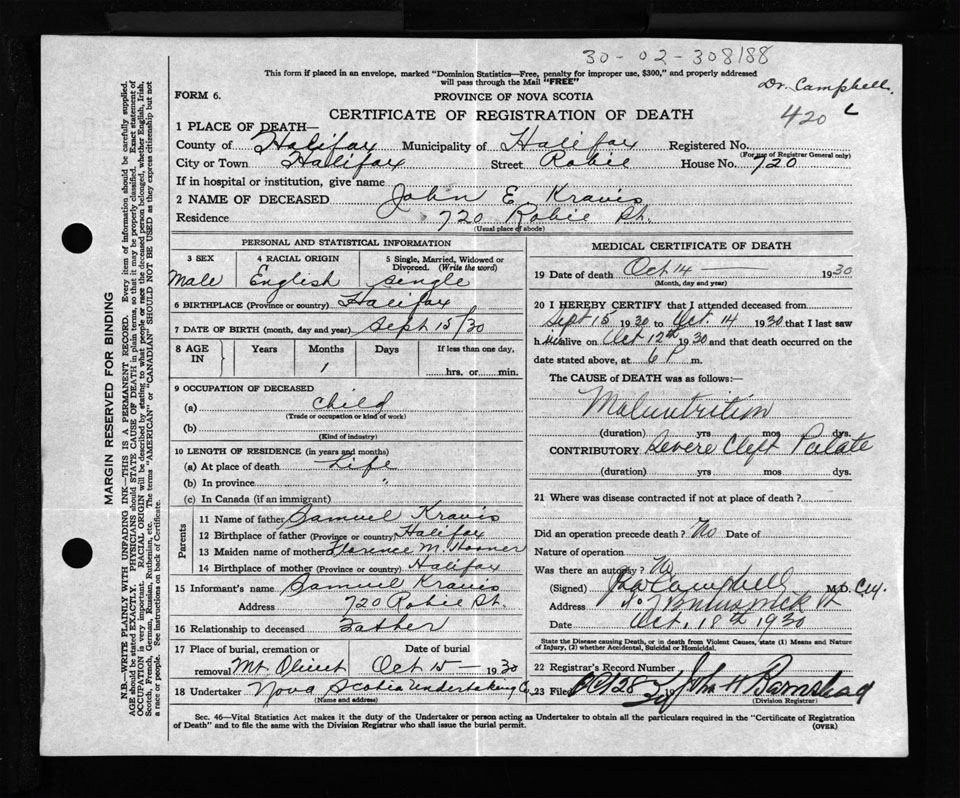 30-02-308188
This form if placed in an envelope, marked "Dominion Statistics—Free, penalty for improper use, $300," and properly addressed
will pass through the Mail "FREE"
Dr. Campbell
FORM 6.
PROVINCE OF NOVA SCOTIA
420 L
CERTIFICATE OF REGISTRATION OF DEATH
1 PLACE OF DEATH—
County of Halifax Municipality of Halifax Registered No.
(For use of Registrar General only)
City or Town Halifax Street Robie House No. 720
If in hospital or institution, give name
2 NAME OF DECEASED John E Kravis
Residence 720 Robie St.
(Usual place of abode)
PERSONAL AND STATISTICAL INFORMATION
3 SEX 4 RACIAL ORIGIN 5 Single, Married, Widowed or Divorced. (Write the word)
Male English Single
6 BIRTHPLACE (Province or country) Halifax
7 DATE OF BIRTH (month, day and year) Sept 15/30
8 AGE IN Years Months Days If less than one day,
1 hrs. or min.
9 OCCUPATION OF DECEASED
(a) Child
(Trade or occupation or kind of work)
(b)
(Kind of industry)
10 LENGTH OF RESIDENCE (in years and months)
(a) At place of death Life
(b) In province "
(c) In Canada (if an immigrant)
Parents
11 Name of father Samuel Kravis
12 Birthplace of father (Province or country) Halifax
13 Maiden name of mother Florence M.
14 Birthplace of mother (Province or country) Halifax
15 Informant's name Samuel Kravis
Address 720 Robie St.
16 Relationship to deceased Father
17 Place of burial, cremation or removal Mt Olivet Date of burial Oct 15 — 1930
18 Undertaker Nova Scotia Undertaking Co
(Name and address)
MEDICAL CERTIFICATE OF DEATH
19 Date of death Oct 14 — 1930
(Month, day and year)
20 I HEREBY CERTIFY that I attended deceased from
Sept 15 1930 to Oct. 14 1930 that I last saw
him alive on Oct 12th 1930 and that death occurred on the
date stated above, at 6 P m.
The CAUSE of DEATH was as follows:—
Malnutrition
(duration) yrs mos dys.
CONTRIBUTORY Severe Cleft Palate
(duration) yrs. mos. dys.
21 Where was disease contracted if not at place of death?
Did an operation precede death? No Date of
Nature of operation
Was there an autopsy? No
(Signed) Campbell M.D.
Address
Date Oct. 18th 1930
State the Disease causing Death, or in death from Violent Causes, state (1) Means and Nature
of Injury, (2) whether Accidental, Suicidal or Homicidal.
22 Registrar's Record Number
23 Filed 28 19 John H Barnstead
(Division Registrar)
Sec. 46—Vital Statistics Act makes it the duty of the Undertaker or person acting as Undertaker to obtain all the particulars required in the "Certificate of Registration
of Death" and to file the same with the Division Registrar who shall issue the burial permit.
(OVER)
MARGIN RESERVED FOR BINDING
N.B.—WRITE PLAINLY WITH UNFADING INK—THIS IS A PERMANENT RECORD. Every item of information should be carefully supplied.
AGE should be stated EXACTLY. PHYSICIANS should STATE CAUSE OF DEATH in plain terms, so that it may be properly classified. Exact statement of
OCCUPATION is very important. RACIAL ORIGIN will be described by stating to what people or race the deceased person belonged, whether English, Irish,
Scotch, French, German, Russian, Ruthenian, etc. The terms "AMERICAN" or "CANADIAN" SHOULD NOT BE USED as they express citizenship but not
a race or people. See instructions on back of Certificate.